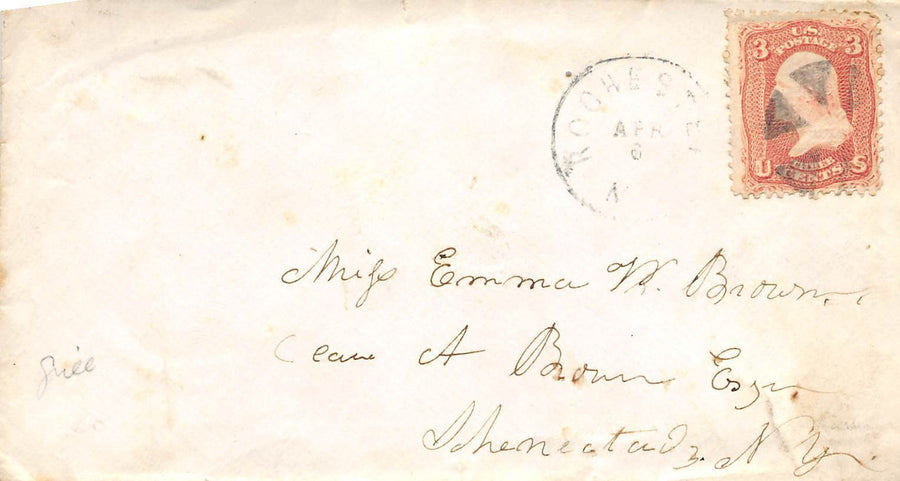 U.S.
POSTAGE
3 3
THREE
U CENTS S
ROCHESTER
APR
6
N
Miss Emma W. Brown.
Care A Brown Esqr
Schenectady N Y.